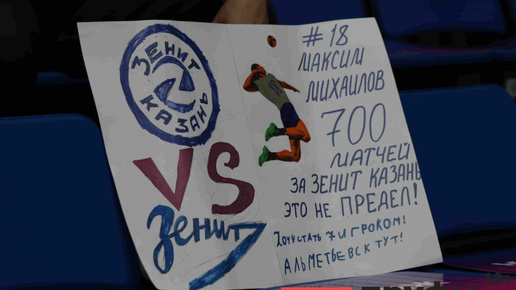 ЗЕНИТ
КАЗАНЬ
VS
Зенит
#18
МАКСИМ
МИХАЙЛОВ
700
МАТЧЕЙ
ЗА ЗЕНИТ КАЗАНЬ
ЭТО НЕ ПРЕДЕЛ!
ХОЧУ СТАТЬ 7 ИГРОКОМ!
АЛЬМЕТЬЕВСК ТУТ!